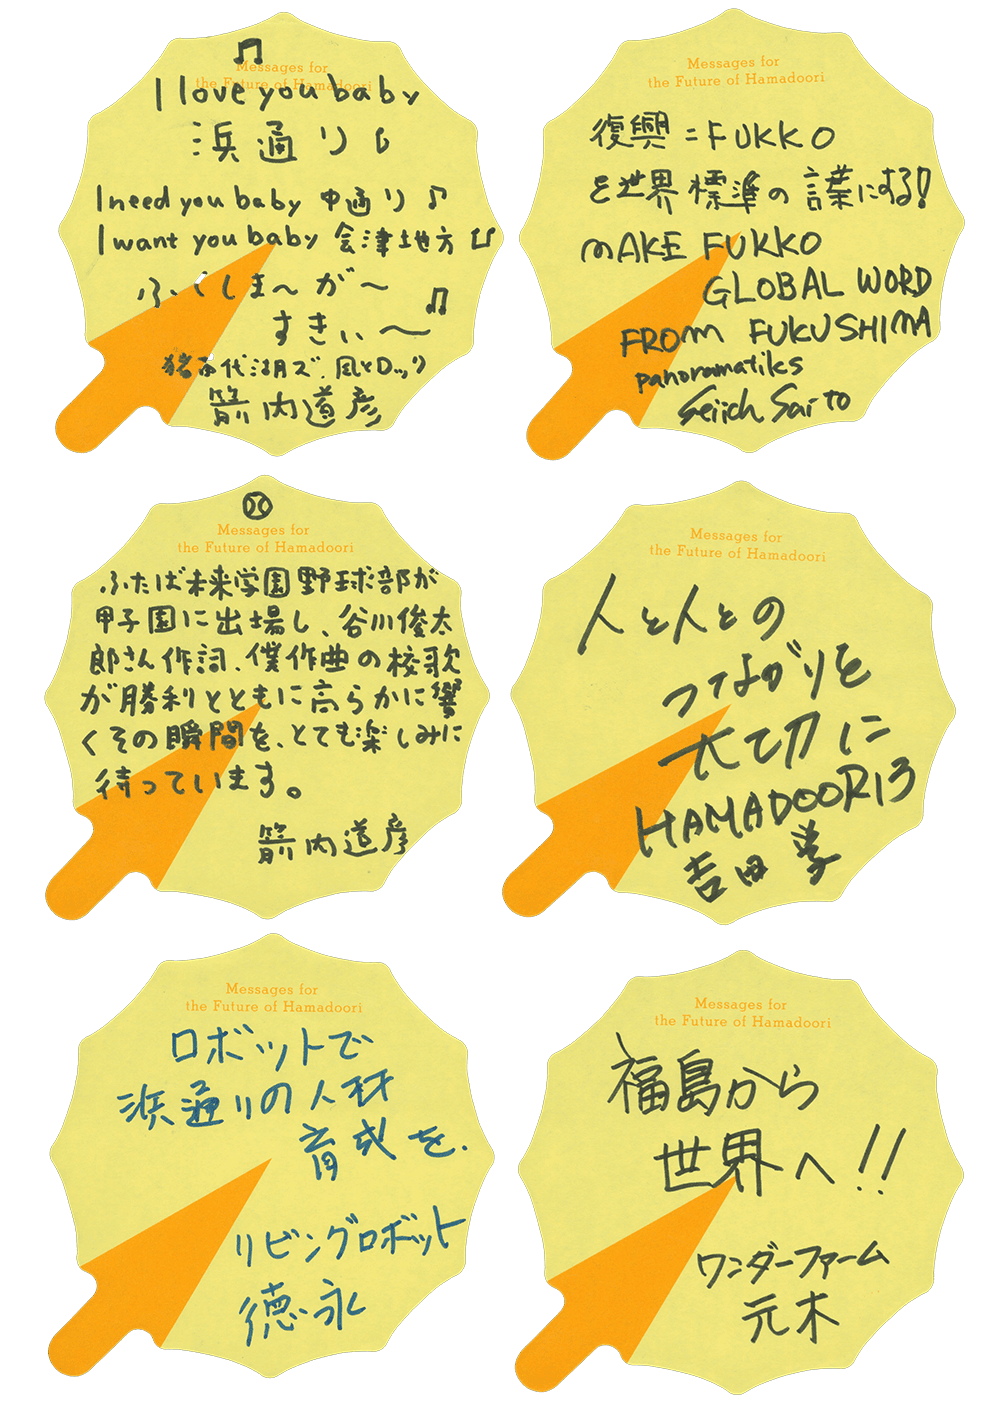 Messages for
the Future of Hamadoori
♫
I love you baby
浜通り♪
I need you baby 中通り♪
I want you baby 会津地方♫
ふくしま〜が〜
すきぃ〜♫
猪苗代湖ズ、風とロック
箭内道彦
Messages for
the Future of Hamadoori
復興=FUKKO
を世界標準の言葉にする!
MAKE FUKKO
GLOBAL WORD
FROM FUKUSHIMA
panoramatiks
Seiich Saito
Messages for
the Future of Hamadoori
ふたば未来学園野球部が
甲子園に出場し、谷川俊太
郎さん作詞、僕作曲の校歌
が勝利とともに高らかに響
くその瞬間を、とても楽しみに
待っています。
箭内道彦
Messages for
the Future of Hamadoori
人と人との
つながりを
大切に
HAMADOORI13
吉田 学
Messages for
the Future of Hamadoori
ロボットで
浜通りの人材
育成を.
リビングロボット
徳永
Messages for
the Future of Hamadoori
福島から
世界へ!!
ワンダーファーム
元木